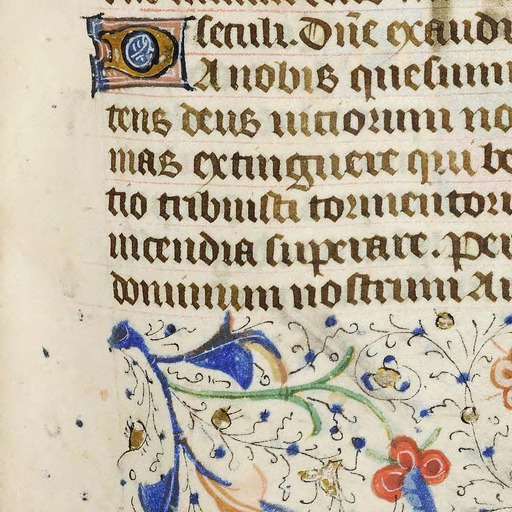 seculi. Dñe exaudi
DA nobis quesumu
tens deus uitiorum no
mas extinguere qui be
tio tribuisti tormentor
incendia superare. Per
dominum nostrum A